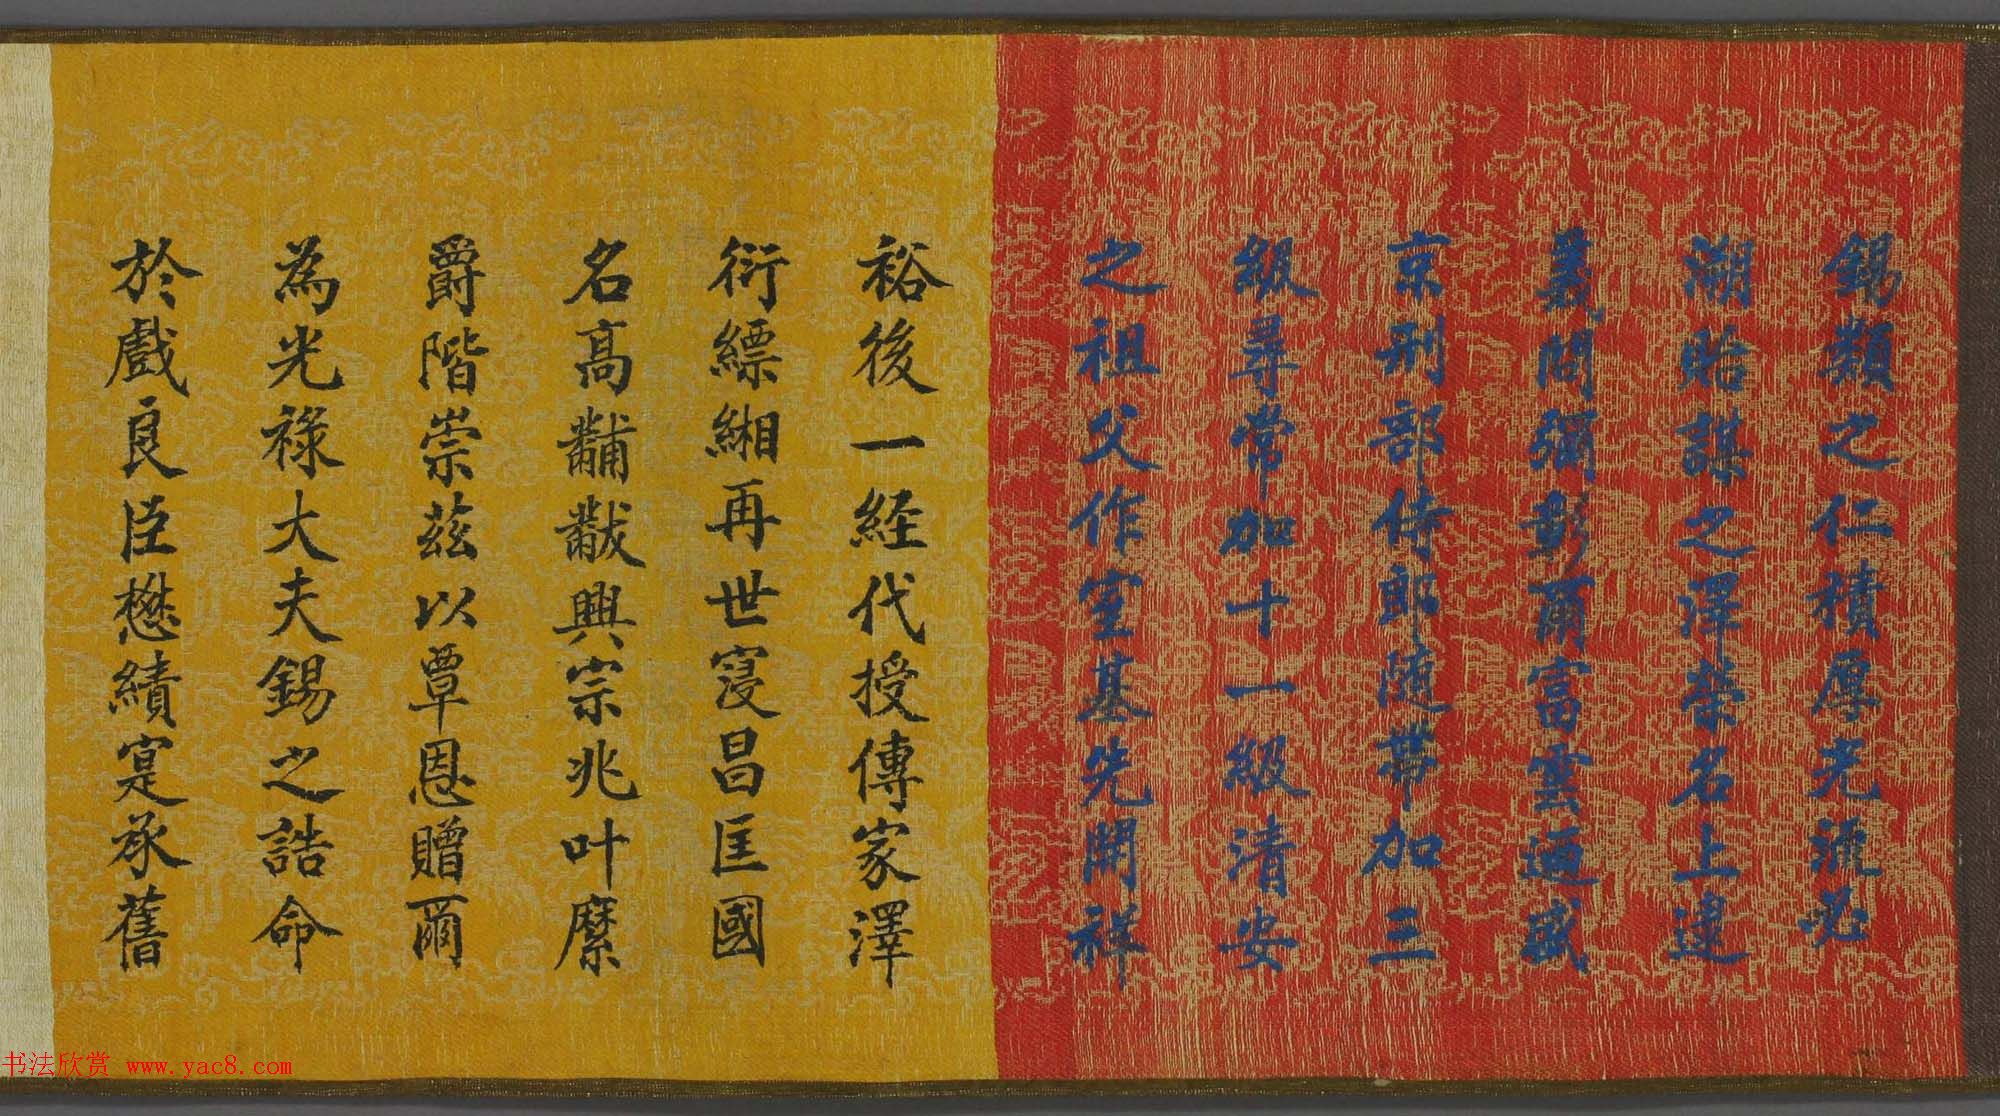 錫類之仁積厚光流必
溯貽謀之澤榮名上逮
義問彌彰爾富雲迺盛
京刑部侍郎随帶加三
級尋常加十一級清安
之祖父作室基先開祥
裕後一経代授傳家澤
衍縹緗再世寖昌匡國
名高黼黻興宗兆叶縻
爵階崇茲以覃恩贈爾
為光祿大夫錫之誥命
於戲良臣懋績寔承舊
书法欣赏 www.yac8.com